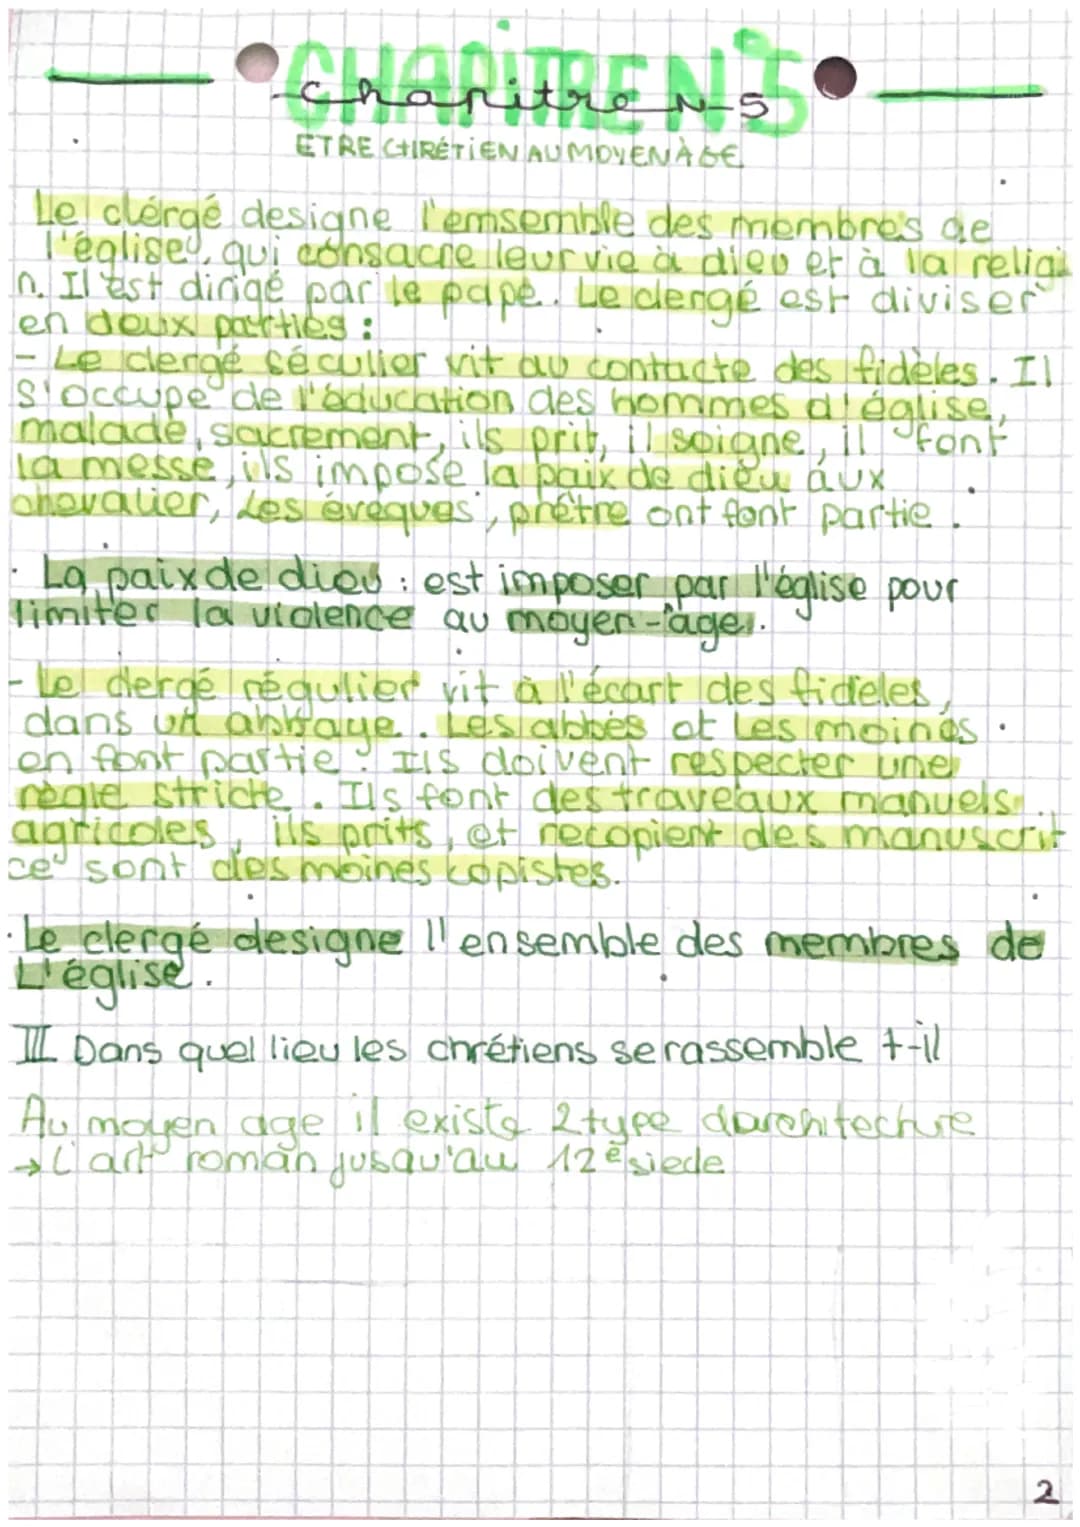 CHAPITRE N°5
Chapitre N-5
ETRE CHRÉTIEN AU MOYEN ÀGE
Le clérgé designe l'emsemble des membres de
l'église, qui consacre leur vie à dieu et à la religi
n. Il est dirigé par le pape. Le clergé est diviser
en deux parties :
- Le clergé séculier vit au contacte des fidèles. Il
s'occupe de l'éducation des hommes d'église,
malade, sacrement, ils prit, il soigne, il font
la messe, ils impose la paix de dieu aux
chevalier, Les éveques, prêtre ont font partie.
· La paix de dieu : est imposer par l'église pour
limiter la violence au moyen-âge.
- Le clergé régulier vit à l'écart des fidèles,
dans un abbaye. Les abbés et Les moines
en font partie. Ils doivent respecter une
règle stricte. Ils font des traveaux manuels
agricoles, ils prits, et recopient des manuscrit
ce sont des moines copistes.
· Le clergé designe l'ensemble des membres de
L'église.
III Dans quel lieu les chrétiens se rassemble t-il
Au moyen age il existe 2 type darchitecture
→ L'art roman jusqu'au 12è siecle
2